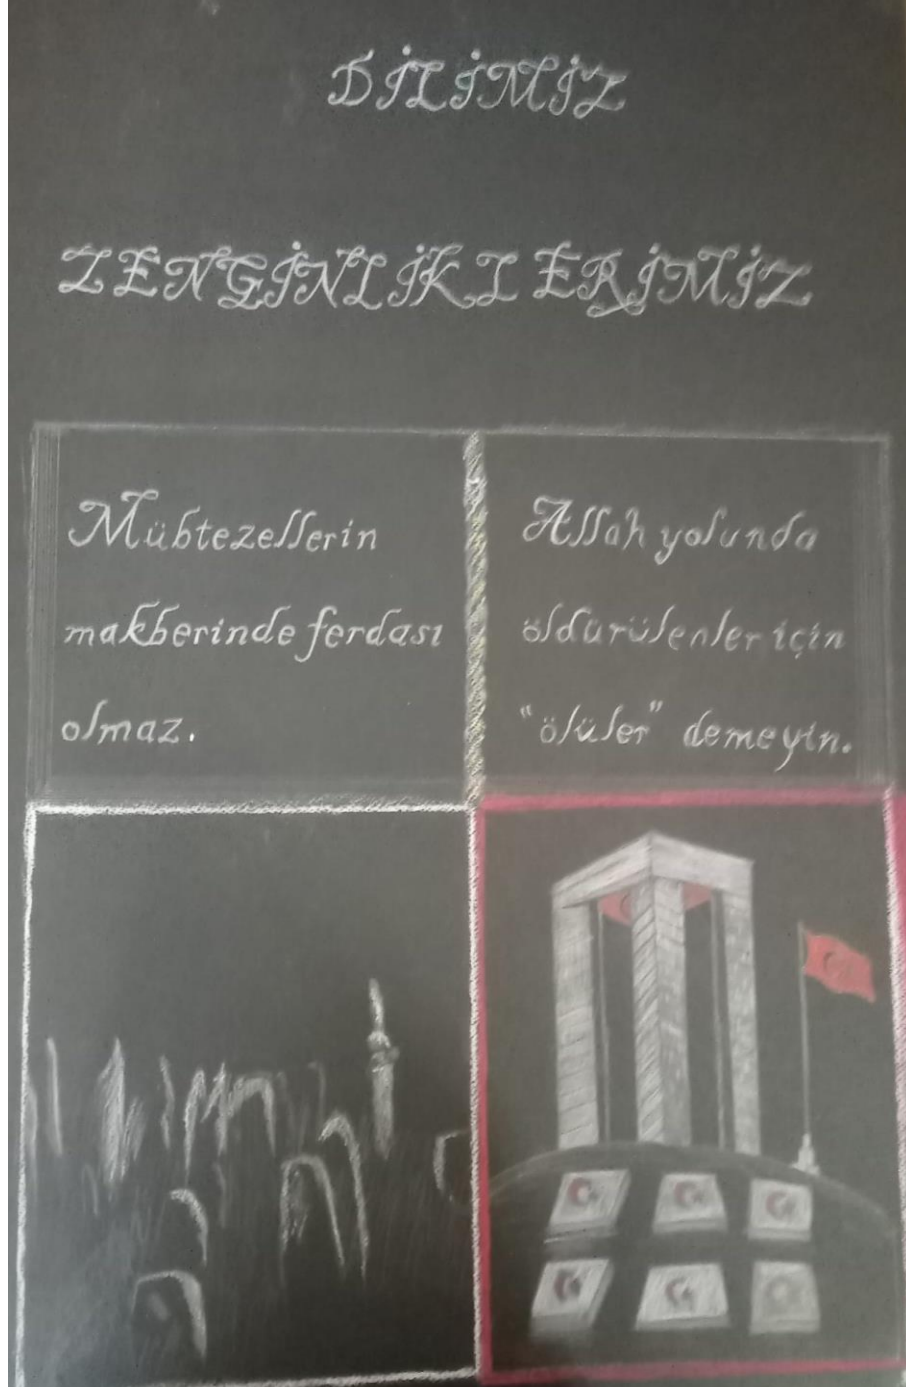 DİLİMİZ
ZENGİNLİKLERİMİZ
Mübtezellerin
makberinde ferdası
olmaz.
Allah yolunda
öldürülenler için
"ölüler" demeyin.